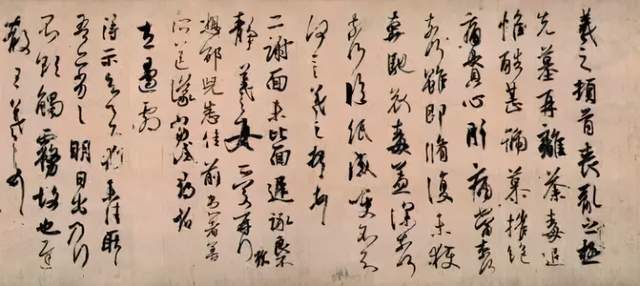 羲之頓首喪亂之極
先墓再離荼毒追
惟酷甚號慕摧絕
痛貫心肝痛當奈何
奈何雖即脩復未獲
奔馳哀毒益深奈何
奈何臨紙感哽不知
何言羲之頓首頓首
二謝面未比面遲詠良不
靜羲之女愛再拜想
邰兒悉佳前患者善
所送議當試尋省
左邊劇
得示知足下猶未佳耿耿
吾亦劣劣明日出乃行
不欲觸霧故也遲
散王羲之頓首